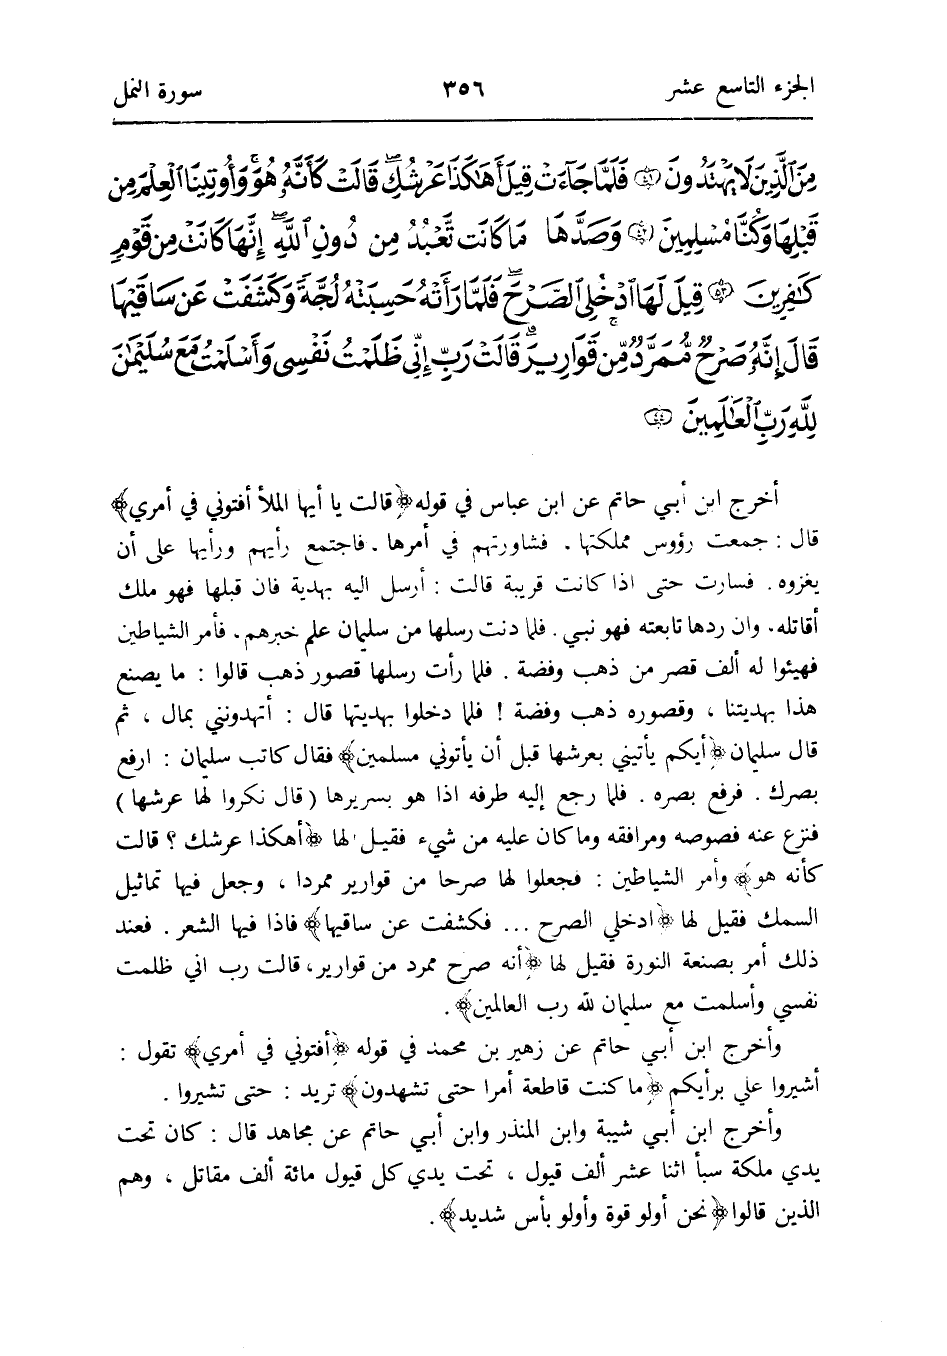 الجزء التاسع عشر ٣٥٦ سورة النمل
مِنَ ٱلَّذِينَ لَا يَهۡتَدُونَ ﴿٤١﴾ فَلَمَّا جَآءَتۡ قِيلَ أَهَٰكَذَا عَرۡشُكِۖ قَالَتۡ كَأَنَّهُۥ هُوَۚ وَأُوتِينَا ٱلۡعِلۡمَ مِن
قَبۡلِهَا وَكُنَّا مُسۡلِمِينَ ﴿٤٢﴾ وَصَدَّهَا مَا كَانَت تَّعۡبُدُ مِن دُونِ ٱللَّهِۖ إِنَّهَا كَانَتۡ مِن قَوۡمٍ
كَٰفِرِينَ ﴿٤٣﴾ قِيلَ لَهَا ٱدۡخُلِي ٱلصَّرۡحَۖ فَلَمَّا رَأَتۡهُ حَسِبَتۡهُ لُجَّةً وَكَشَفَتۡ عَن سَاقَيۡهَاۚ
قَالَ إِنَّهُۥ صَرۡحٌ مُّمَرَّدٌ مِّن قَوَارِيرَۗ قَالَتۡ رَبِّ إِنِّي ظَلَمۡتُ نَفۡسِي وَأَسۡلَمۡتُ مَعَ سُلَيۡمَٰنَ
لِلَّهِ رَبِّ ٱلۡعَٰلَمِينَ ﴿٤٤﴾
أخرج ابن أبي حاتم عن ابن عباس في قوله ﴿قالت يا أيها الملأ أفتوني في أمري﴾
قال : جمعت رؤوس مملكتها . فشاورتهم في أمرها . فاجتمع رأيهم ورأيها على أن
يغزوه . فسارت حتى اذا كانت قريبة قالت : أرسل اليه بهدية فان قبلها فهو ملك
أقاتله . وان ردها تابعته فهو نبي . فلما دنت رسلها من سليمان علم خبرهم . فأمر الشياطين
فهيئوا له ألف قصر من ذهب وفضة . فلما رأت رسلها قصور ذهب قالوا : ما يصنع
هذا بهديتنا ، وقصوره ذهب وفضة ! فلما دخلوا بهديتها قال : أتهدونني بمال ، ثم
قال سليمان ﴿أيكم يأتيني بعرشها قبل أن يأتوني مسلمين﴾ فقال كاتب سليمان : ارفع
بصرك . فرفع بصره . فلما رجع إليه طرفه اذا هو بسريرها (قال نكروا لها عرشها)
فنزع عنه فصوصه ومرافقه وما كان عليه من شيء فقيل لها ﴿أهكذا عرشك ؟ قالت
كأنه هو﴾ وأمر الشياطين : فجعلوا لها صرحا من قوارير ممردا ، وجعل فيها تماثيل
السمك فقيل لها ﴿ادخلي الصرح ... فكشفت عن ساقيها﴾ فاذا فيها الشعر . فعند
ذلك أمر بصنعة النورة فقيل لها ﴿أنه صرح ممرد من قوارير، قالت رب اني ظلمت
نفسي وأسلمت مع سليمان لله رب العالمين﴾ .
وأخرج ابن أبي حاتم عن زهير بن محمد في قوله ﴿أفتوني في أمري﴾ تقول :
أشيروا علي برأيكم ﴿ما كنت قاطعة أمرا حتى تشهدون﴾ تريد : حتى تشيروا .
وأخرج ابن أبي شيبة وابن المنذر وابن أبي حاتم عن مجاهد قال : كان تحت
يدي ملكة سبأ اثنا عشر ألف قيول ، تحت يدي كل قيول مائة ألف مقاتل ، وهم
الذين قالوا ﴿نحن أولو قوة وأولو بأس شديد﴾ .